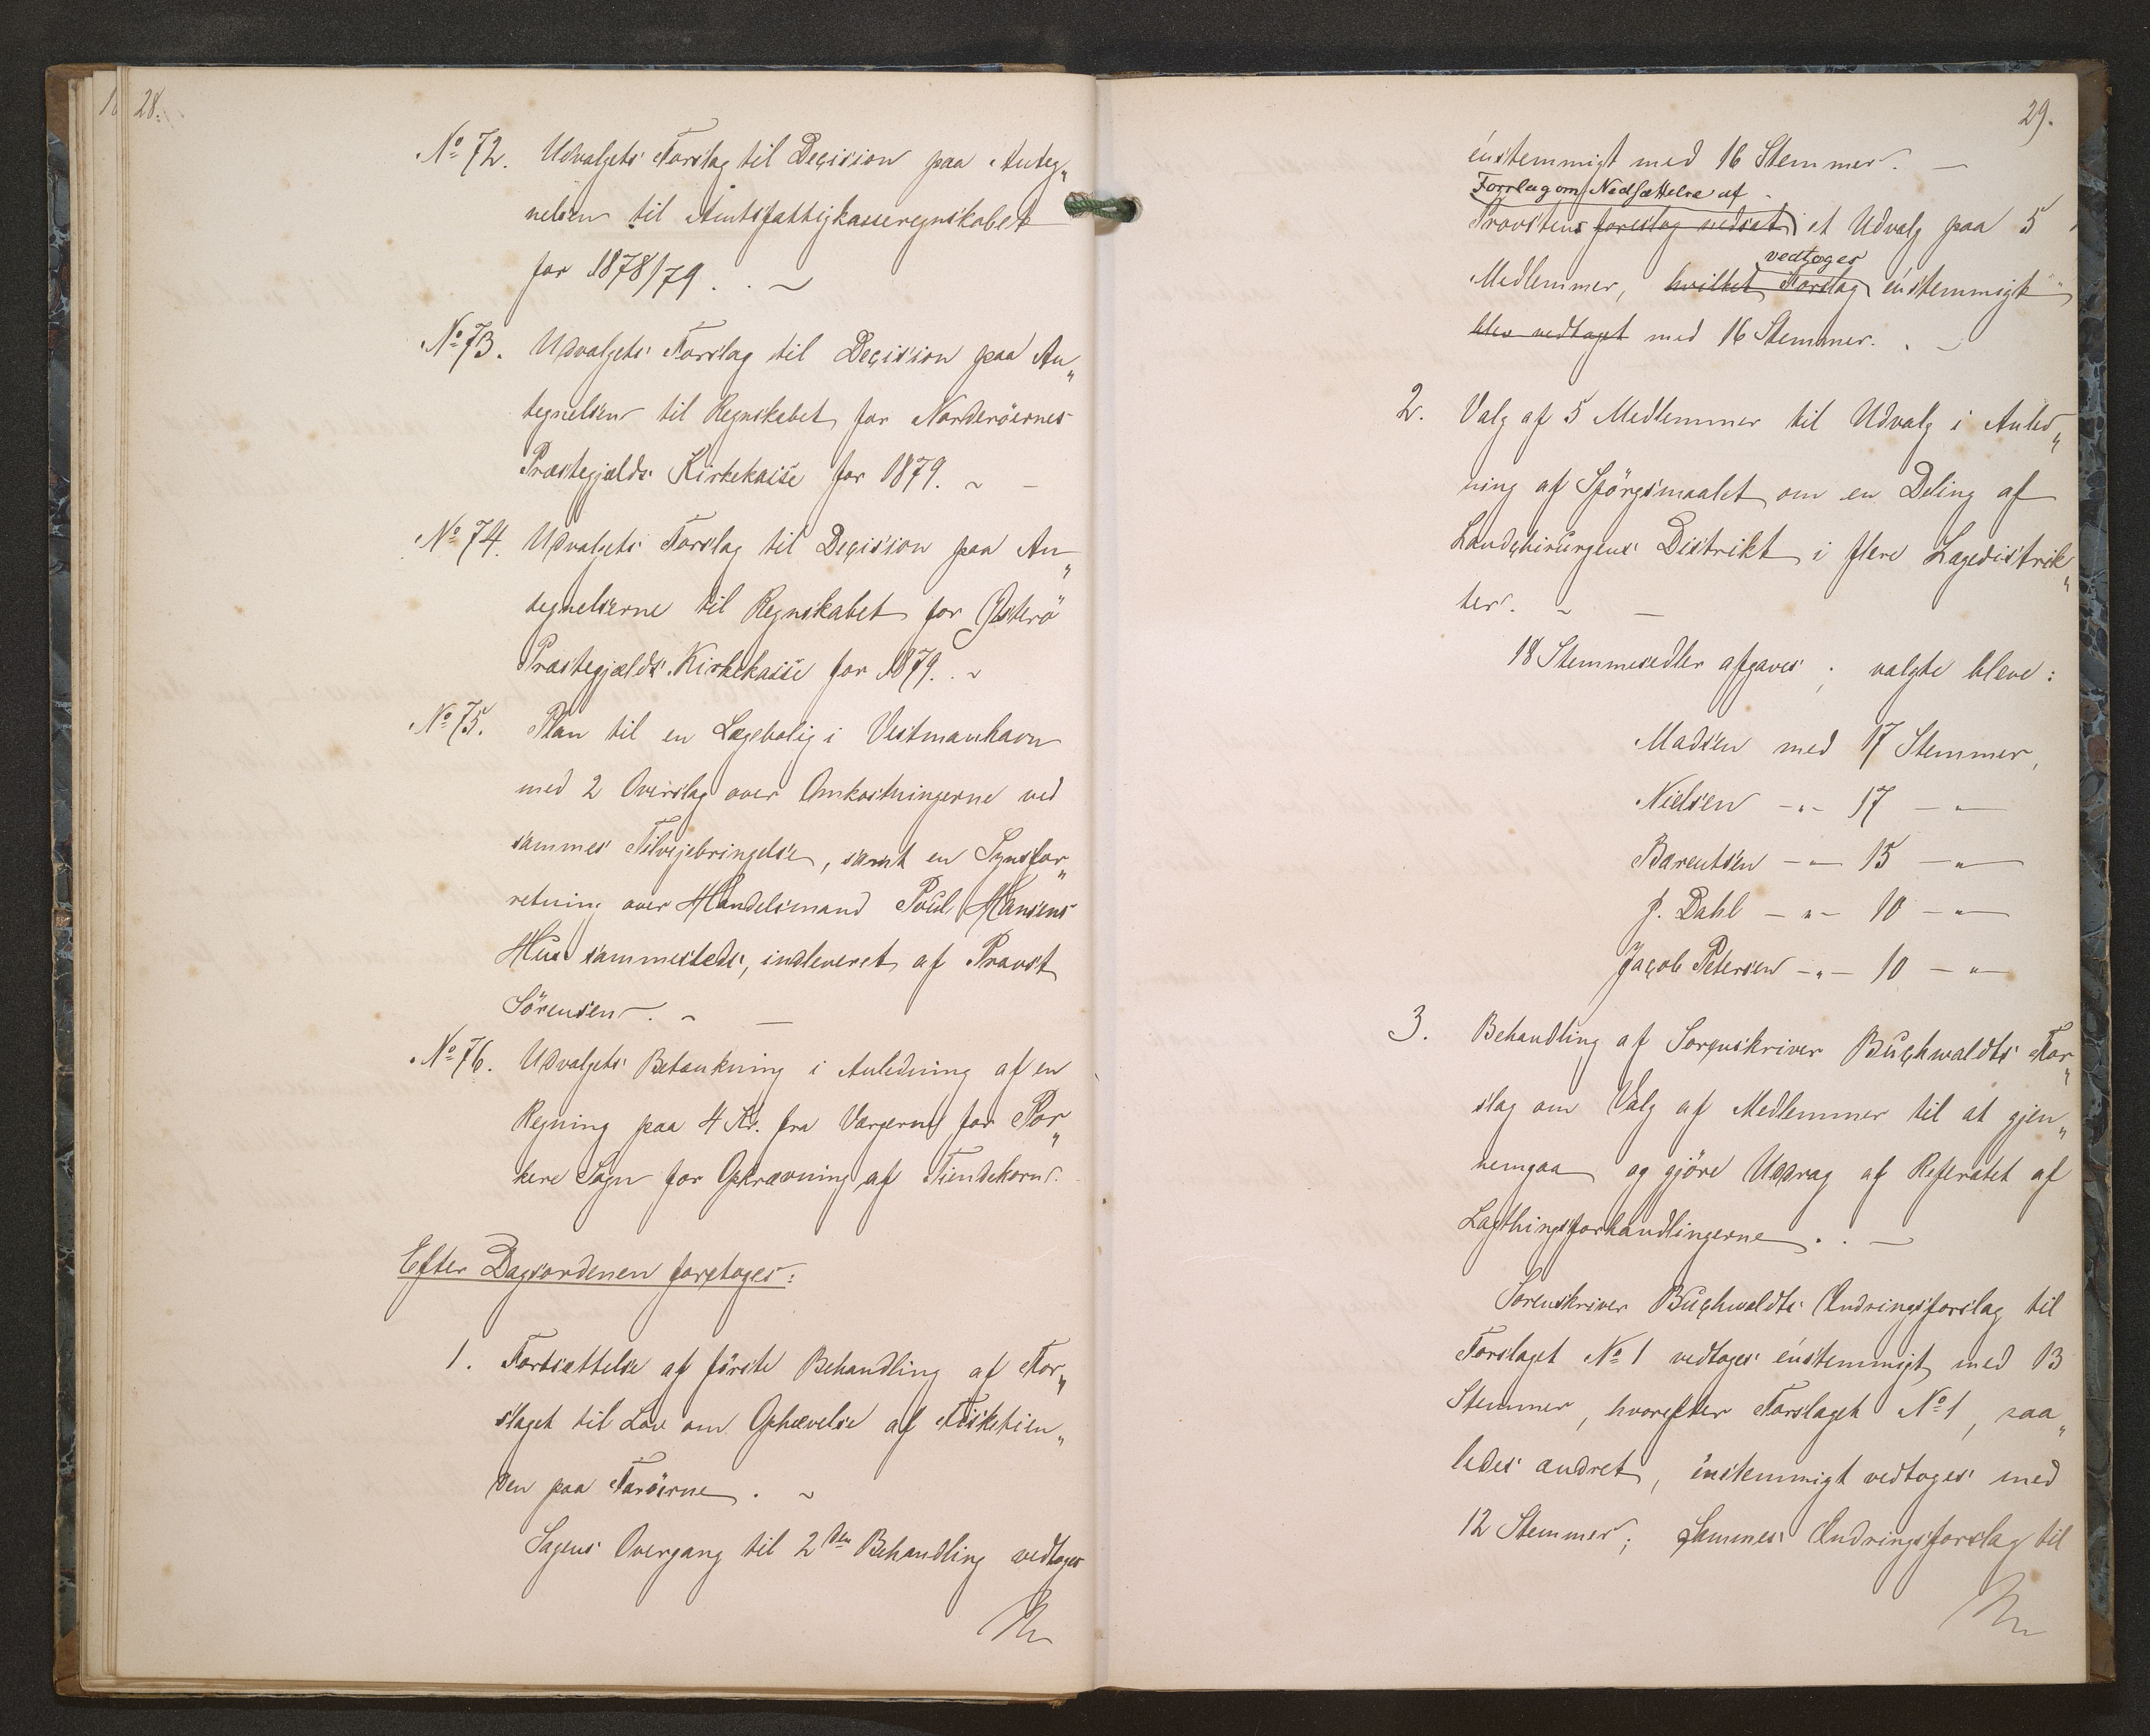 28.
No 72. Udvalgets Forslag til Decision paa Anteg„
nelsen til Amtsfattigkasseregnskabet
for 1878/79.
No 73. Udvalgets Forslag til Decision paa An„
tegnelsen til Regnskabet for Norderöernes
Præstegjælds Kirkekasse for 1879.
No 74. Udvalgets Forslag til Decision paa An„
tegnelserne til Regnskabet for Österö
Præstegjælds Kirkekasse for 1879.
No 75. Plan til en Lægebolig i Vestmanhavn
med 2 Overslag over Omkostningerne ved
sammes Tilvejebringelse, samt en Synsfor„
retning over Handelsmand Poul Hansens
Hus sammesteds, indleveret af Provst
Sörensen.
No 76. Udvalgets Betænkning i Anledning af en
Regning paa 4 Kr. fra Værgerne for Por„
kere Sogn for Opkrævning af Tiendekorn.
Efter Dagsordenen foretoges:
1. Fortsættelse af förste Behandling af For„
slaget til Lov om Ophævelse af Fisketien„
den paa Færöerne.
Sagens Overgang til 2den Behandling vedtoges
29.
énstemmigt med 16 Stemmer. —
Forslag om Nedsættelse af
Provstens foreslog nedsat et Udvalg paa 5
vedtoges
Medlemmer, hvilket Forslag énstemmigt
blev vedtaget med 16 Stemmer.
2. Valg af 5 Medlemmer til Udvalg i Anled„
ning af Spörgsmaalet om en Deling af
Landchirurgens Distrikt i flere Lægedistrik„
ter. —
18 Stemmesedler afgaves; valgte bleve:
Madsen med 17 Stemmer,
Nielsen -„- 17 -„-
Barentsen -„- 15 -„-
J. Dahl -„- 10 -„-
Jacob Petersen -„- 10 -„-
3. Behandling af Sorenskriver Buchwaldts For„
slag om Valg af Medlemmer til at gjen„
nemgaa og gjöre Uddrag af Referatet af
Lagthingsforhandlingerne. —
Sorenskriver Buchwaldts Ændringsforslag til
Forslaget No 1 vedtoges énstemmigt med 13
Stemmer, hvorefter Forslaget No 1, saa„
ledes ændret, énstemmigt vedtoges med
12 Stemmer; Sammes Ændringsforslag til